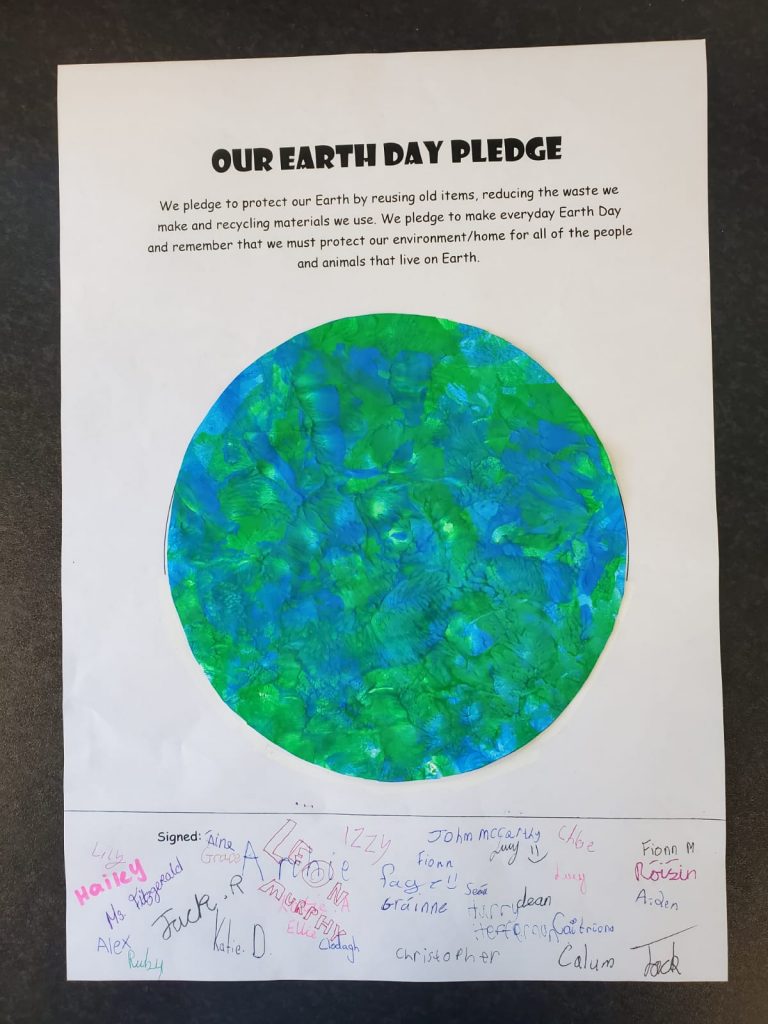 OUR EARTH DAY PLEDGE
We pledge to protect our Earth by reusing old items, reducing the waste we
make and recycling materials we use. We pledge to make everyday Earth Day
and remember that we must protect our environment/home for all of the people
and animals that live on Earth.
Signed:
Áine
LEON MURPHY
IZZY
John McCarthy
Chloe
Lily
Grace
Lucy
Fionn M
Fionn
Hailey
Ms. Fitzgerald
Lucy
Róisín
Seán
Gráinne
Harry Heffernan
dean
Aiden
Jack.R
Ellie
Alex
Katie. D.
Clodagh
Caitríona
Ruby
Christopher
Calum
Jack